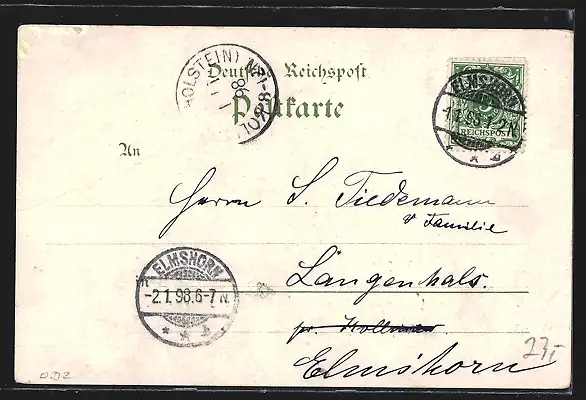 Deutsche Reichspost
Postkarte
(HOLSTEIN)
98
ELMSHORN
1.1.98.1-2N
REICHSPOST
An
Herrn S. Tiedemann
u Familie
Langenhals.
pr. Kollmar
Elmshorn
ELMSHORN
-2.1.98.6-7N.
23,-